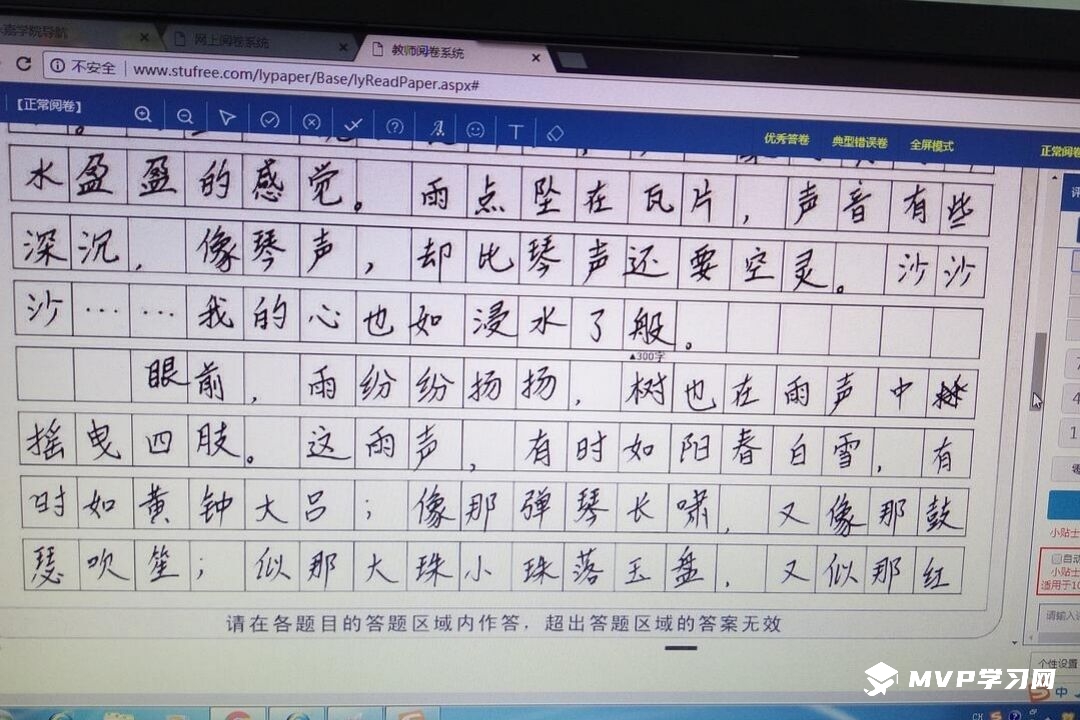 嘉学院导航 网上阅卷系统 教师阅卷系统
不安全 www.stufree.com/lypaper/Base/lyReadPaper.aspx#
【正常阅卷】
优秀答卷 典型错误卷 全屏模式 正常阅卷
水盈盈的感觉。雨点坠在瓦片，声音有些
深沉，像琴声，却比琴声还要空灵。沙沙
沙……我的心也如浸水了般。
▲300字
眼前，雨纷纷扬扬，树也在雨声中
摇曳四肢。这雨声，有时如阳春白雪，有
时如黄钟大吕；像那弹琴长啸，又像那鼓
瑟吹笙；似那大珠小珠落玉盘，又似那红
请在各题目的答题区域内作答，超出答题区域的答案无效
小贴士
自动
小贴士
适用于10
请输入
个性设置
MVP学习网
中
CH